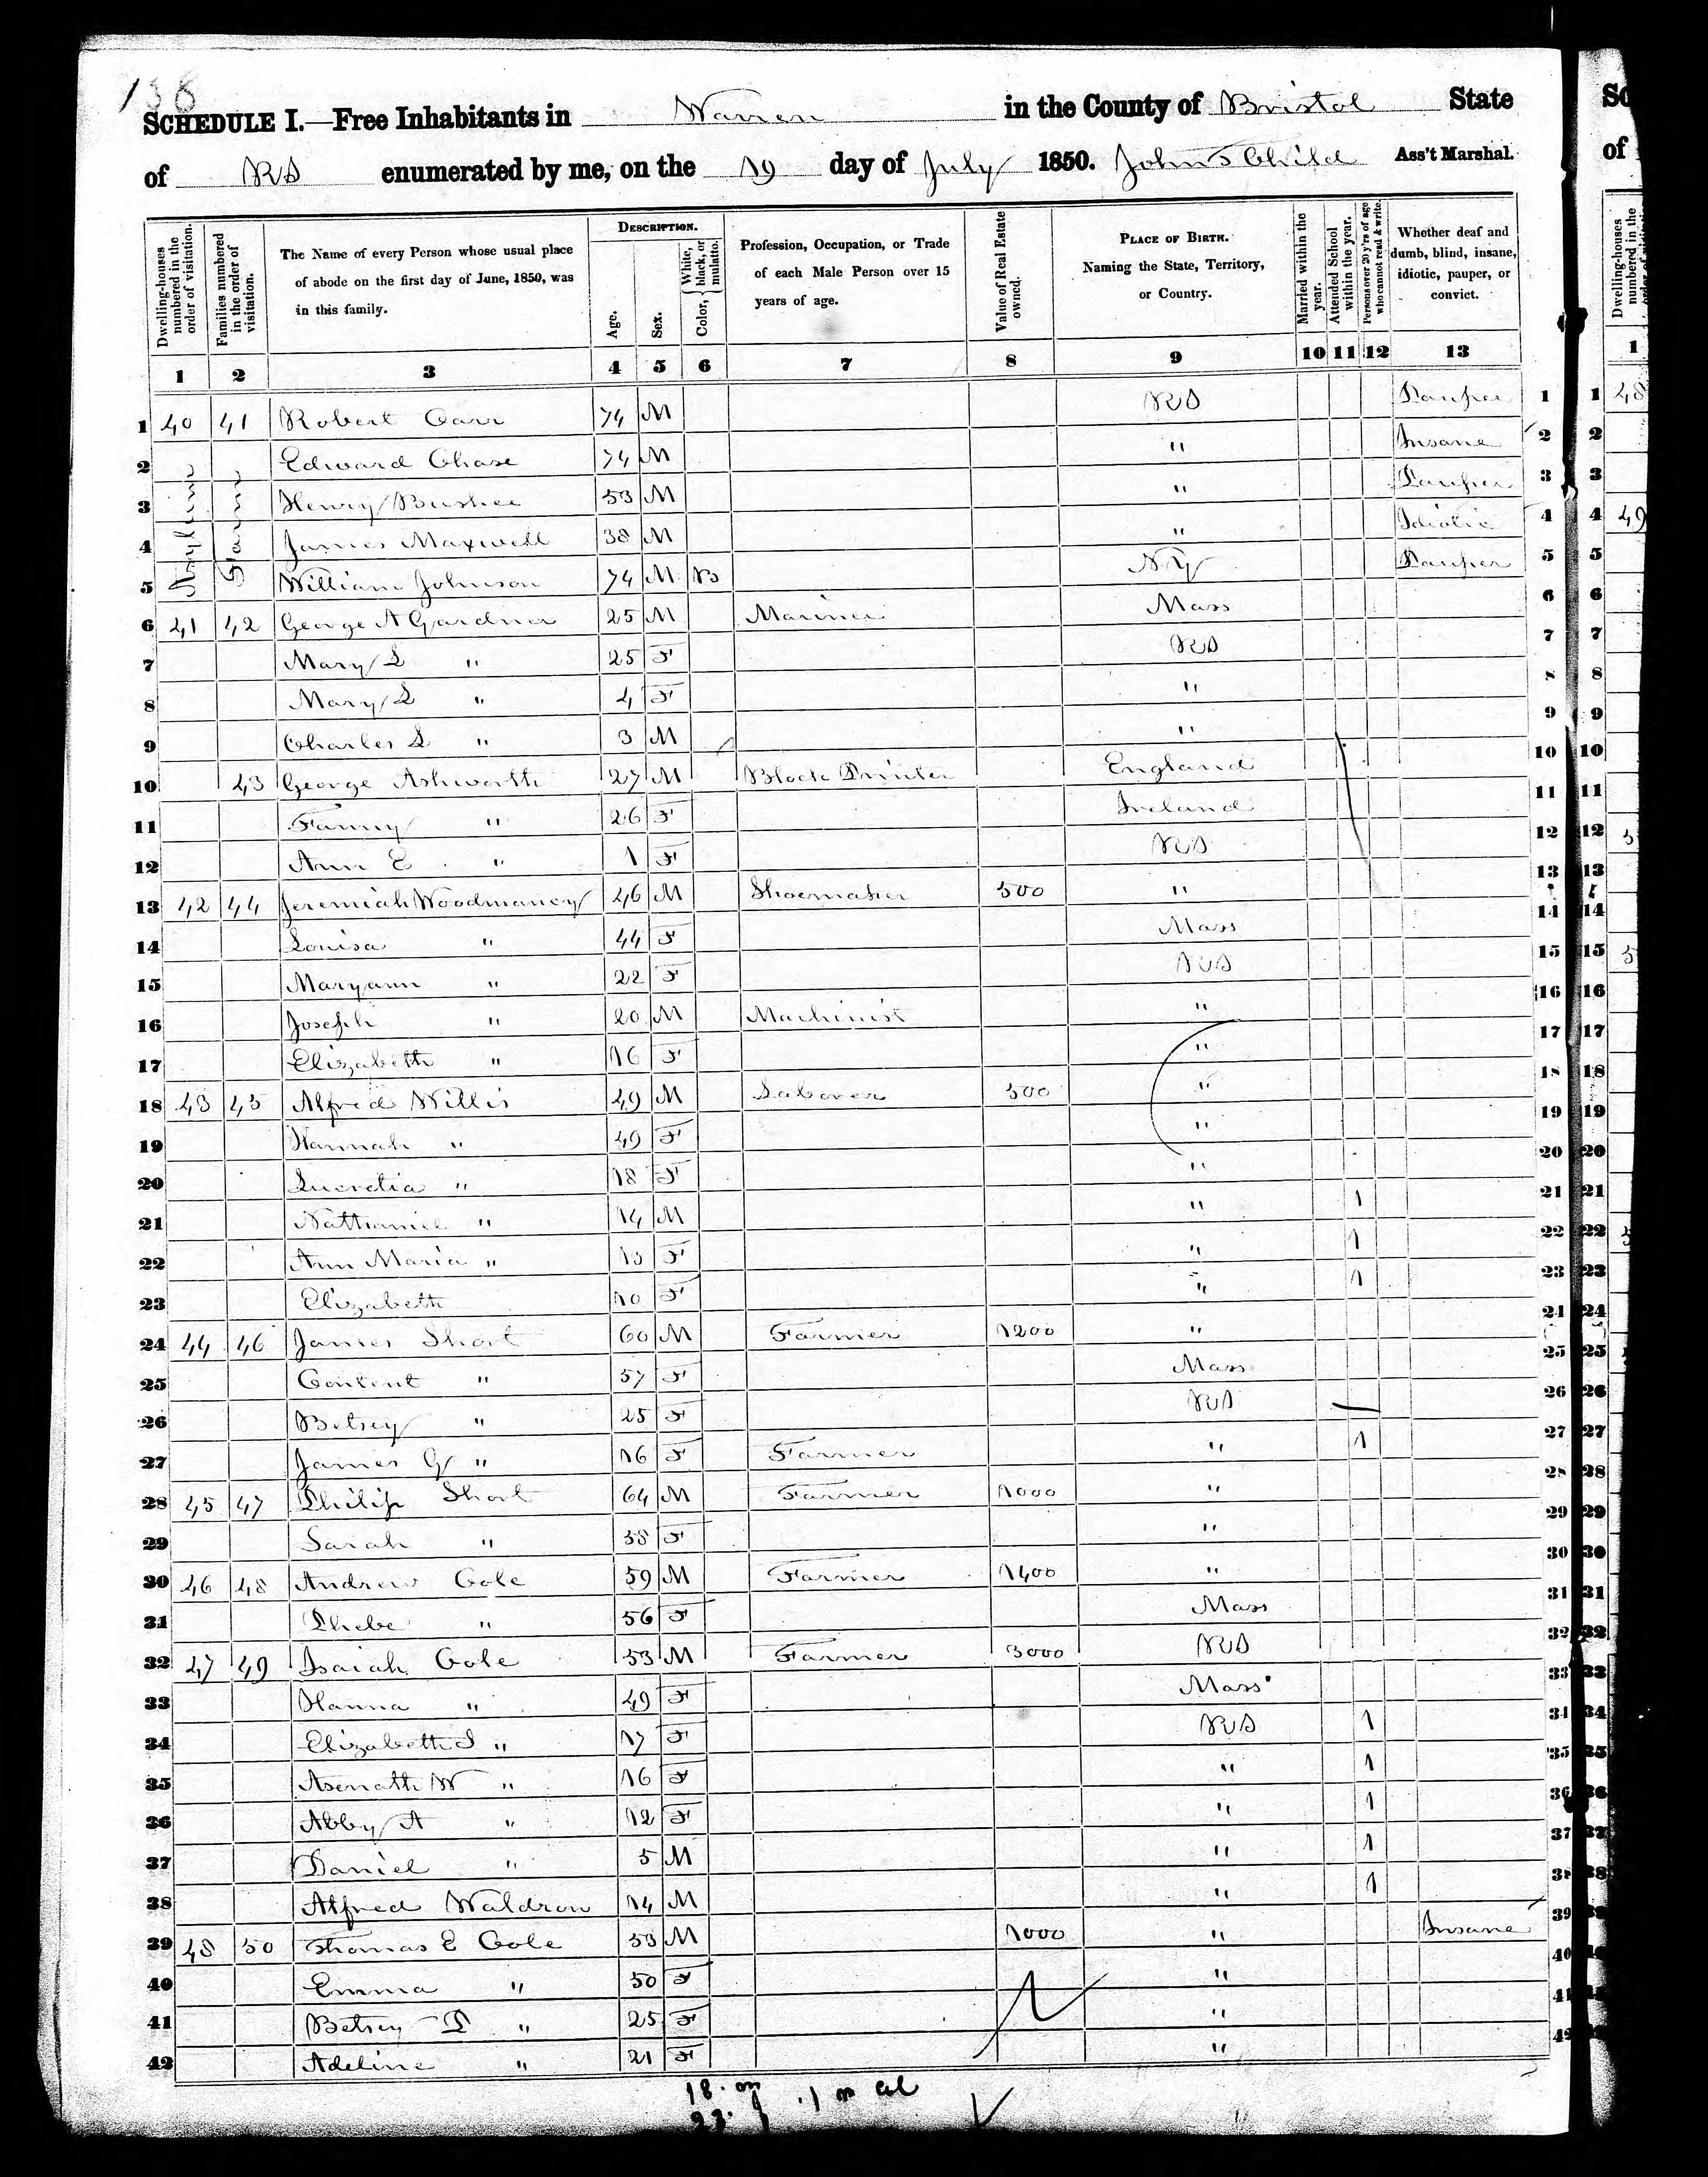 138
SCHEDULE I.—Free Inhabitants in Warren in the County of Bristol State
of RI enumerated by me, on the 19 day of July 1850. John S Child Ass't Marshal.
Dwelling-houses numbered in the order of visitation.
Families numbered in the order of visitation.
The Name of every Person whose usual place of abode on the first day of June, 1850, was in this family.
DESCRIPTION.
Age.
Sex.
Color, { White, black, or mulatto.
Profession, Occupation, or Trade of each Male Person over 15 years of age.
Value of Real Estate owned.
PLACE OF BIRTH. Naming the State, Territory, or Country.
Married within the year.
Attended School within the year.
Persons over 20 y'rs of age who cannot read & write.
Whether deaf and dumb, blind, insane, idiotic, pauper, or convict.
1 2 3 4 5 6 7 8 9 10 11 12 13
1 40 41 Robert Carr 74 M RI Pauper 1
2 Edward Chase 74 M " Insane 2
3 Henry Bushee 53 M " Pauper 3
4 James Maxwell 38 M " Idiotic 4
5 William Johnson 74 M B N.Y Pauper 5
Asylum
Warren
6 41 42 George A Gardner 25 M Mariner Mass 6
7 Mary L " 25 F RI 7
8 Mary L " 4 F " 8
9 Charles L " 3 M " 9
10 43 George Ashworth 27 M Block Printer England 10
11 Fanny " 26 F Ireland 11
12 Ann E " 1 F RI 12
13 42 44 Jeremiah Woodmancy 46 M Shoemaker 500 " 13
14 Louisa " 44 F Mass 14
15 Maryann " 22 F RI 15
16 Joseph " 20 M Machinist " 16
17 Elizabeth " 16 F " 17
18 43 45 Alfred Willis 49 M Laborer 500 " 18
19 Hannah " 49 F " 19
20 Lucretia " 18 F " 20
21 Nathaniel " 14 M " 1 21
22 Ann Maria " 13 F " 1 22
23 Elizabeth 10 F " 1 23
24 44 46 James Short 60 M Farmer 1200 " 24
25 Content " 57 F Mass 25
26 Betsey " 25 F RI 26
27 James G " 16 F Farmer " 1 27
28 45 47 Philip Short 64 M Farmer 1000 " 28
29 Sarah " 58 F " 29
30 46 48 Andrew Cole 59 M Farmer 1400 " 30
31 Phebe " 56 F Mass 31
32 47 49 Isaiah Cole 53 M Farmer 3000 RI 32
33 Hanna " 49 F Mass 33
34 Elizabeth S " 17 F RI 1 34
35 Asenath W " 16 F " 1 35
36 Abby A " 12 F " 1 36
37 Daniel " 5 M " 1 37
38 Alfred Waldron 14 M " 1 38
39 48 50 Thomas E Cole 53 M 1000 " Insane 39
40 Emma " 50 F " 40
41 Betsey D " 25 F " 41
42 Adeline " 21 F " 42
18. m .1 m col
23. f